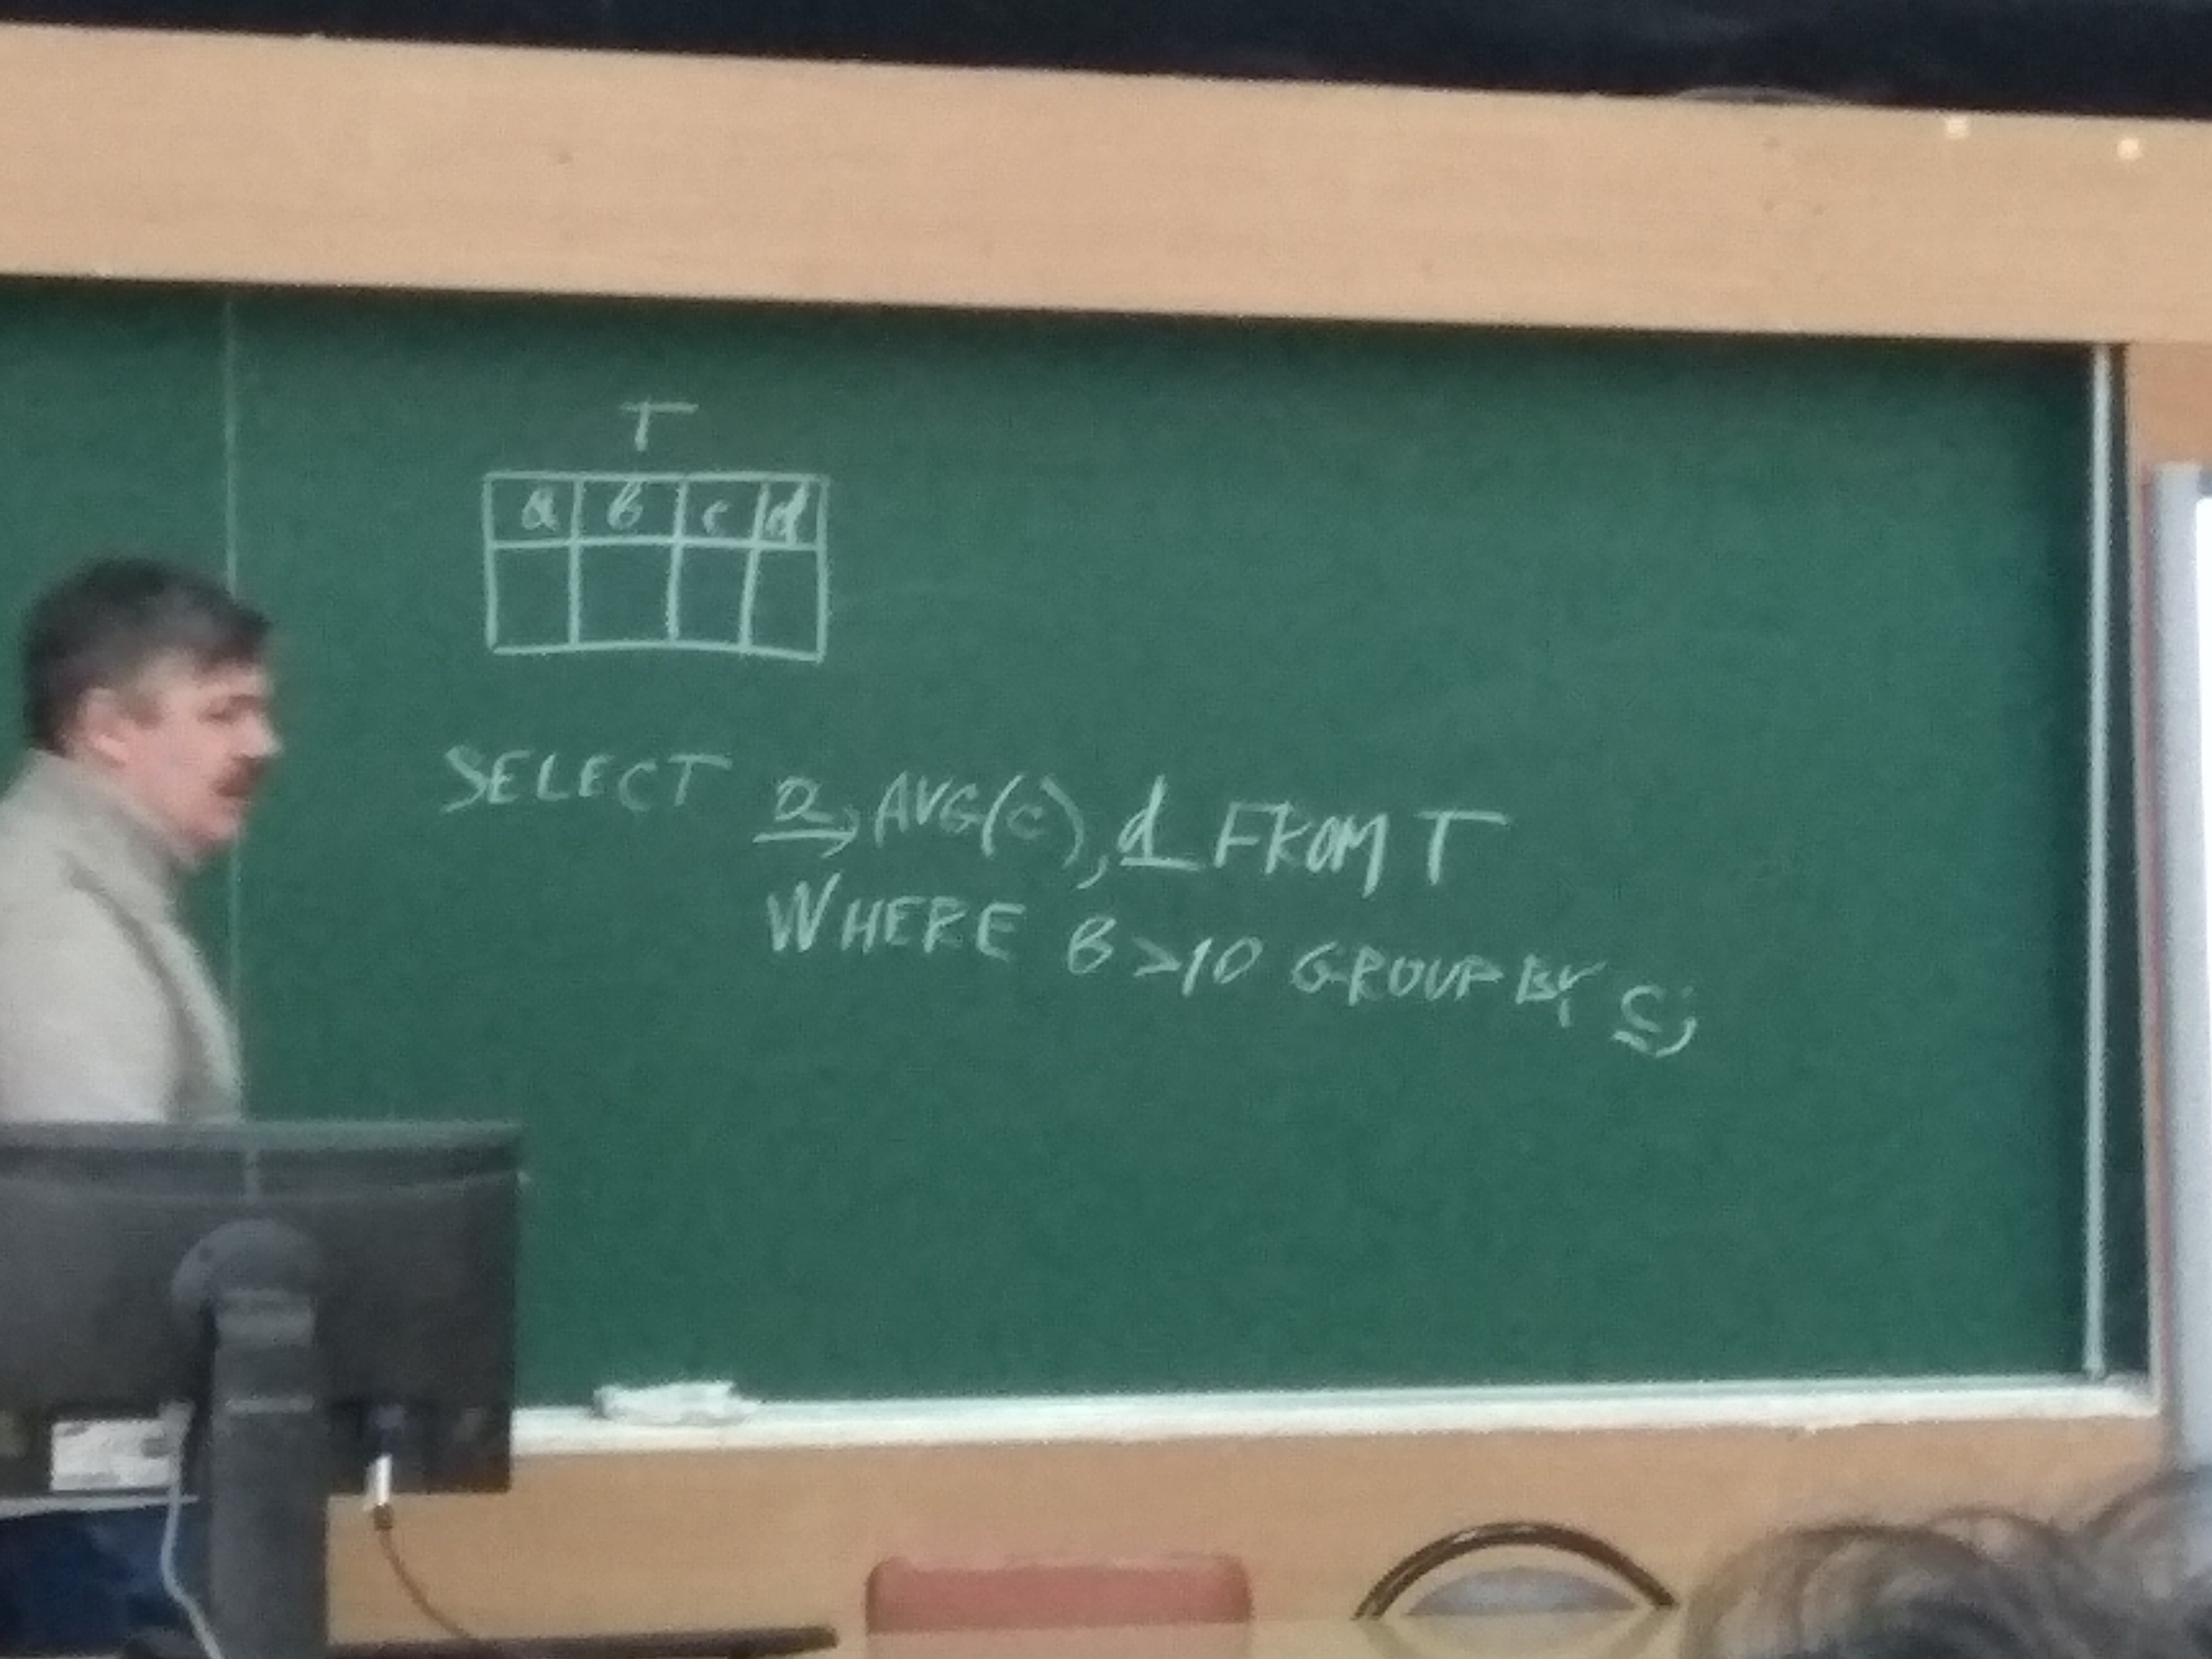 T
a b c d
SELECT a, AVG(c), d FROM T
WHERE b > 10 GROUP BY c;